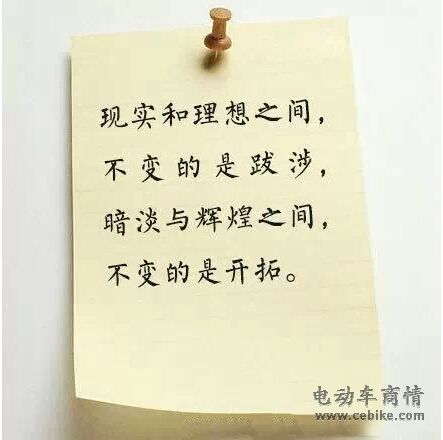 现实和理想之间，
不变的是跋涉，
暗淡与辉煌之间，
不变的是开拓。
电动车商情
www.cebike.com